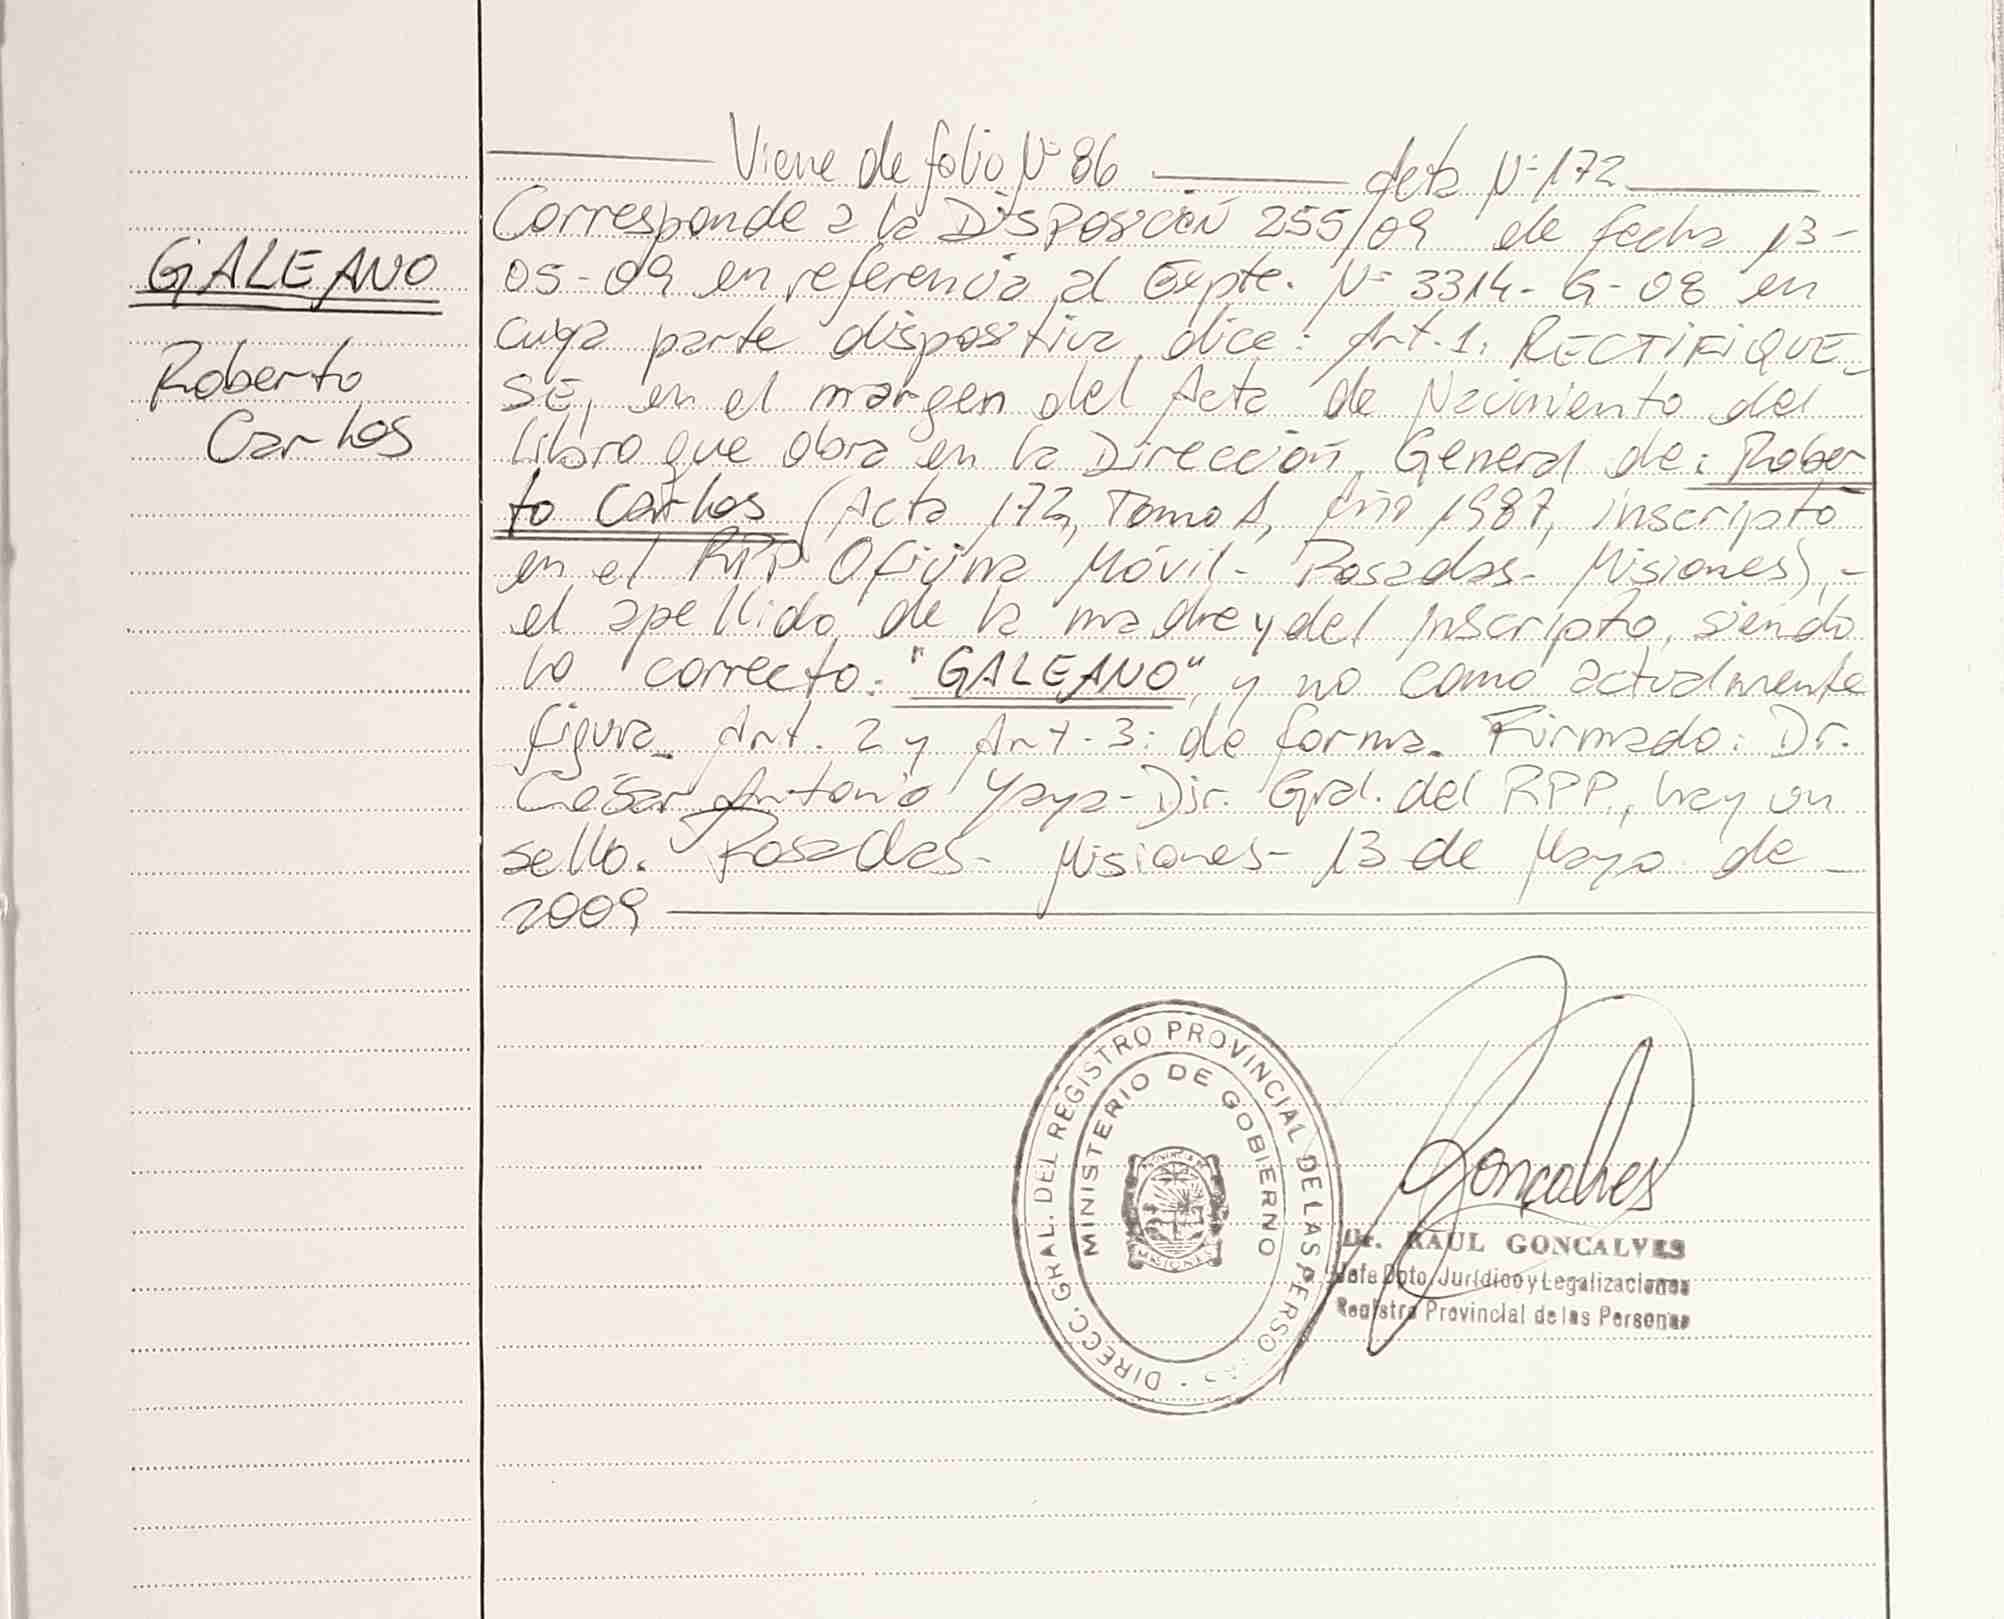 Viene de folio Nº 86 Acta Nº 172
GALEANO
Roberto
Carlos
Corresponde a la Disposición 255/09 de fecha 13-
05-09 en referencia al Expte. Nº 3314-G-08 en
cuya parte dispositiva dice: Art. 1: RECTIFIQUE_
SE, en el margen del Acta de Nacimiento del
libro que obra en la Dirección General de: Rober
to Carlos (Acta 172, Tomo 1, Año 1987, inscripto
en el RPP Oficina Móvil- Posadas- Misiones),-
el apellido de la madre y del inscripto, siendo
lo correcto: "GALEANO", y no como actualmente
figura. Art. 2 y Art. 3: de forma. Firmado: Dr.
César Antonio Yaya- Dir. Gral. del RPP, hay un
sello. Posadas- Misiones- 13 de Mayo de
2009
DIRECC. GRAL. DEL REGISTRO PROVINCIAL DE LAS PERSONAS
MINISTERIO DE GOBIERNO
MISIONES
Goncalves
Dr. RAUL GONCALVES
Jefe Dpto. Jurídico y Legalizaciones
Registro Provincial de las Personas